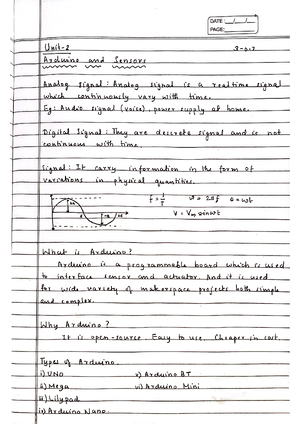 DATE: __/__/__
PAGE:
Unit-2
Arduino and Sensors
Analog signal: Analog signal is a realtime signal
which continuously vary with time.
Eg: Audio signal (voice), power supply at home.
Digital Signal: They are descrete signal and is not
continuous with time.
Signal: It carry information in the form of
variations in physical quantities.
f = 1/T ω = 2πf θ = ωt
V = Vm sinωt
What is Arduino?
Arduino is a programmable board which is used
to interface sensor and actuator. And it is used
for wide variety of makerspace projects both simple
and complex.
Why Arduino?
It is open-source. Easy to use. Cheaper in cost.
Types of Arduino.
i) UNO v) Arduino BT
ii) Mega vi) Arduino Mini
iii) Lilypad
iv) Arduino Nano.